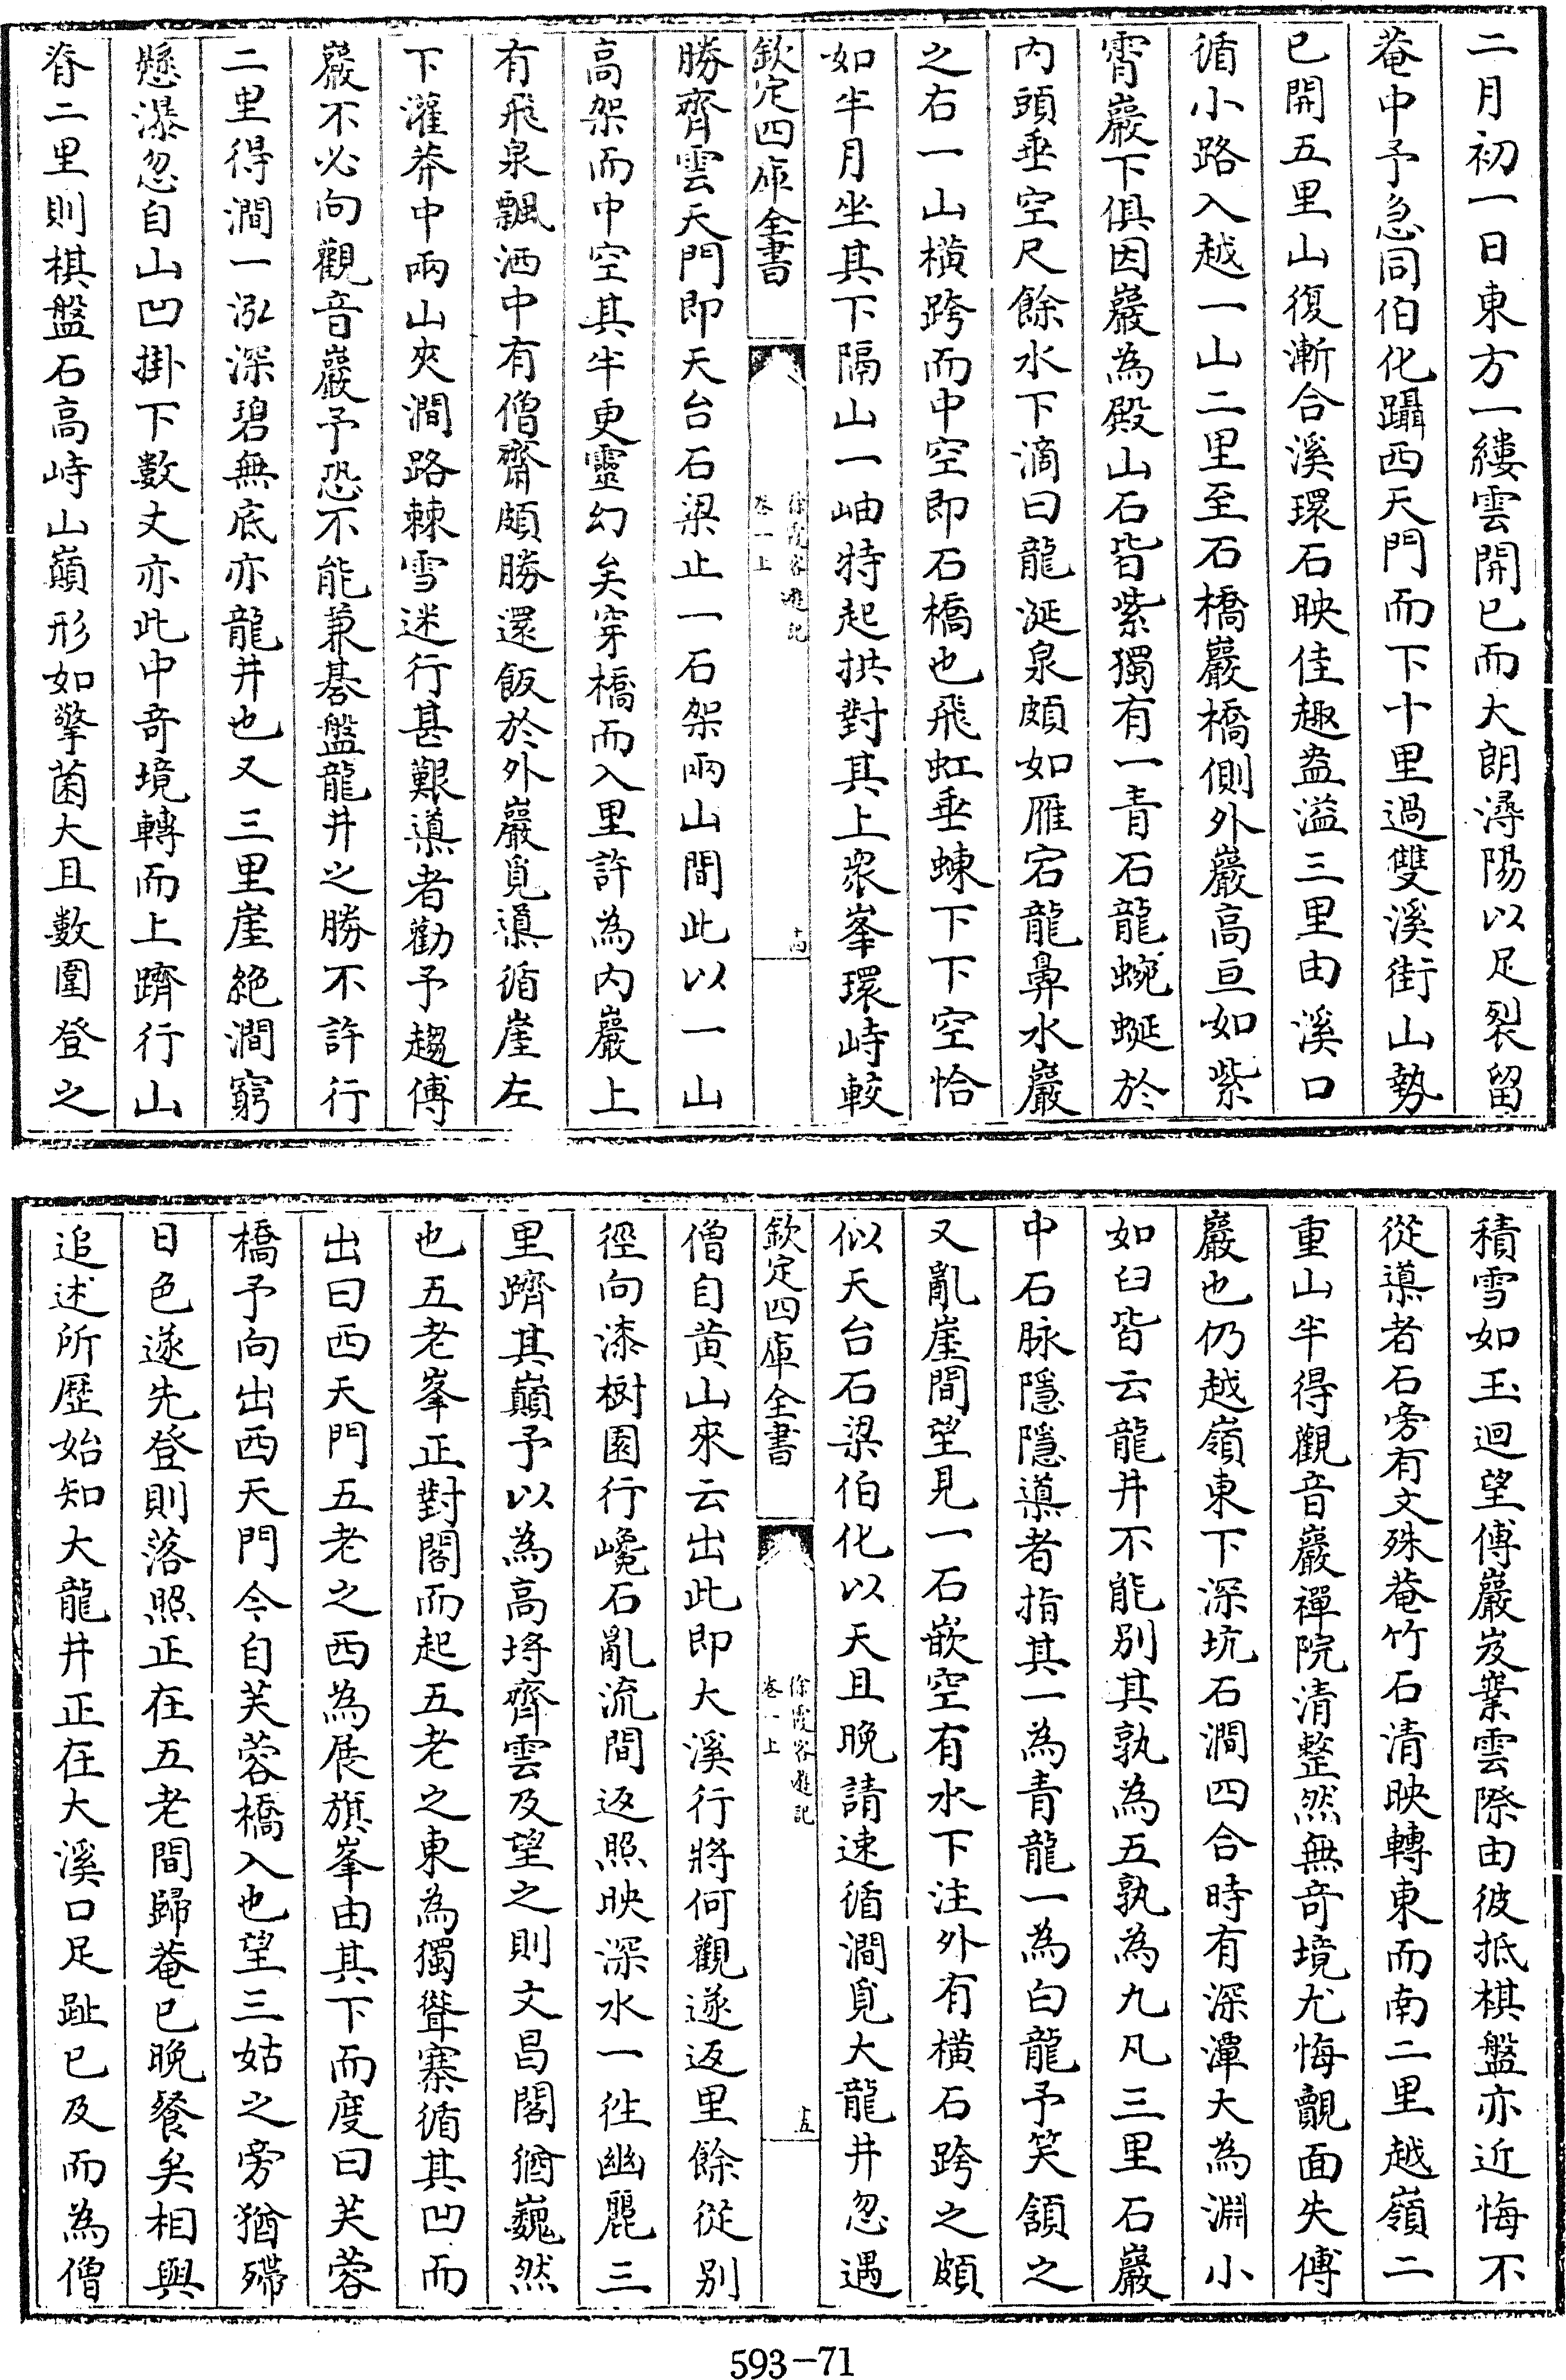 二月初一日東方一縷雲開已而大朗潯陽以足裂留
菴中予急同伯化躡西天門而下十里過雙溪街山勢
已開五里山復漸合溪環石映佳趣益溢三里由溪口
循小路入越一山二里至石橋巖橋側外巖高亘如紫
霄巖下俱因巖為殿山石皆紫獨有一青石龍蜿蜒於
内頭垂空尺餘水下滴曰龍涎泉頗如雁宕龍鼻水巖
之右一山横跨而中空即石橋也飛虹垂蝀下下空恰
如半月坐其下隔山一岫特起拱對其上衆峯環峙較
欽定四庫全書
徐霞客遊記
卷一上
十四
勝齊雲天門即天台石梁止一石架兩山間此以一山
高架而中空其半更靈幻矣穿橋而入里許為内巖上
有飛泉飄洒中有僧齋頗勝還飯於外巖覓導循崖左
下灌莽中兩山夾澗路棘雪迷行甚艱導者勸予趨傅
巖不必向觀音巖予恐不能兼碁盤龍井之勝不許行
二里得澗一泓深碧無底亦龍井也又三里崖絶澗窮
懸瀑忽自山凹掛下數丈亦此中竒境轉而上躋行山
脊二里則棋盤石高峙山巔形如擎菌大且數圍登之
積雪如玉迴望傅巖岌嶪雲際由彼抵棋盤亦近悔不
從導者石旁有文殊菴竹石清映轉東而南二里越嶺二
重山半得觀音巖禪院清整然無竒境尤悔覿面失傅
巖也仍越嶺東下深坑石澗四合時有深潭大為淵小
如臼皆云龍井不能别其孰為五孰為九凡三里石巖
中石脉隱隱導者指其一為青龍一為白龍予笑頷之
又亂崖間望見一石嵌空有水下注外有横石跨之頗
似天台石梁伯化以天且晚請速循澗覓大龍井忽遇
欽定四庫全書
徐霞客遊記
卷一上
十五
僧自黄山來云出此即大溪行將何觀遂返里餘從别
徑向漆樹園行巉石亂流間返照映深水一徃幽麗三
里躋其巔予以為高埒齊雲及望之則文昌閣猶巍然
也五老峯正對閣而起五老之東為獨聳寨循其凹而
出曰西天門五老之西為展旗峯由其下而度曰芙蓉
橋予向出西天門今自芙蓉橋入也望三姑之旁猶殢
日色遂先登則落照正在五老間歸菴已晚餐矣相與
追述所歴始知大龍井正在大溪口足趾已及而為僧
593-71